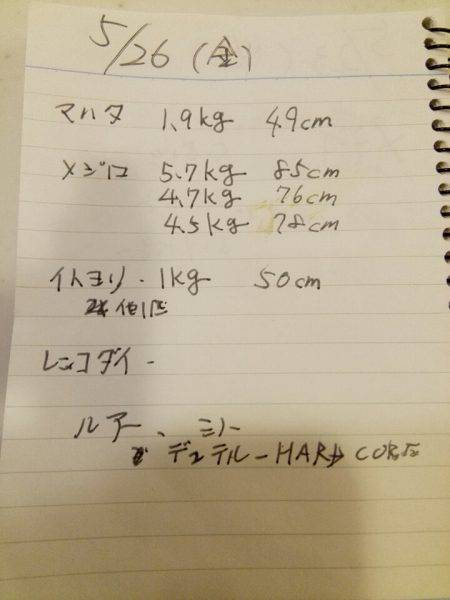 5/26 (金)
マハタ 1.9kg 49cm
メジロ 5.7kg 85cm
4.7kg 76cm
4.5kg 78cm
イトヨリ - 1kg 50cm
他1匹
レンコダイ -
ルアー、ミノー
デュエル - HARD CORE